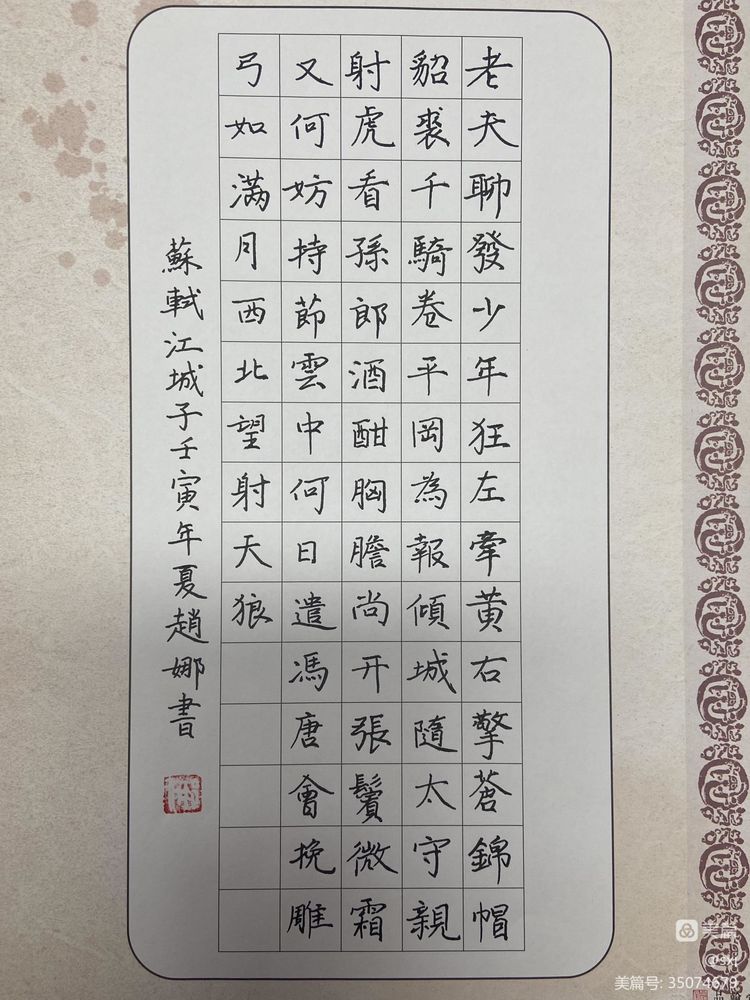 老夫聊發少年狂左牽黄右擎蒼錦帽
貂裘千騎卷平岡為報傾城隨太守親
射虎看孫郎酒酣胸膽尚开張鬢微霜
又何妨持節雲中何日遣馮唐會挽雕
弓如滿月西北望射天狼
蘇軾江城子壬寅年夏趙娜書
美篇
@sxj
美篇号: 35074679